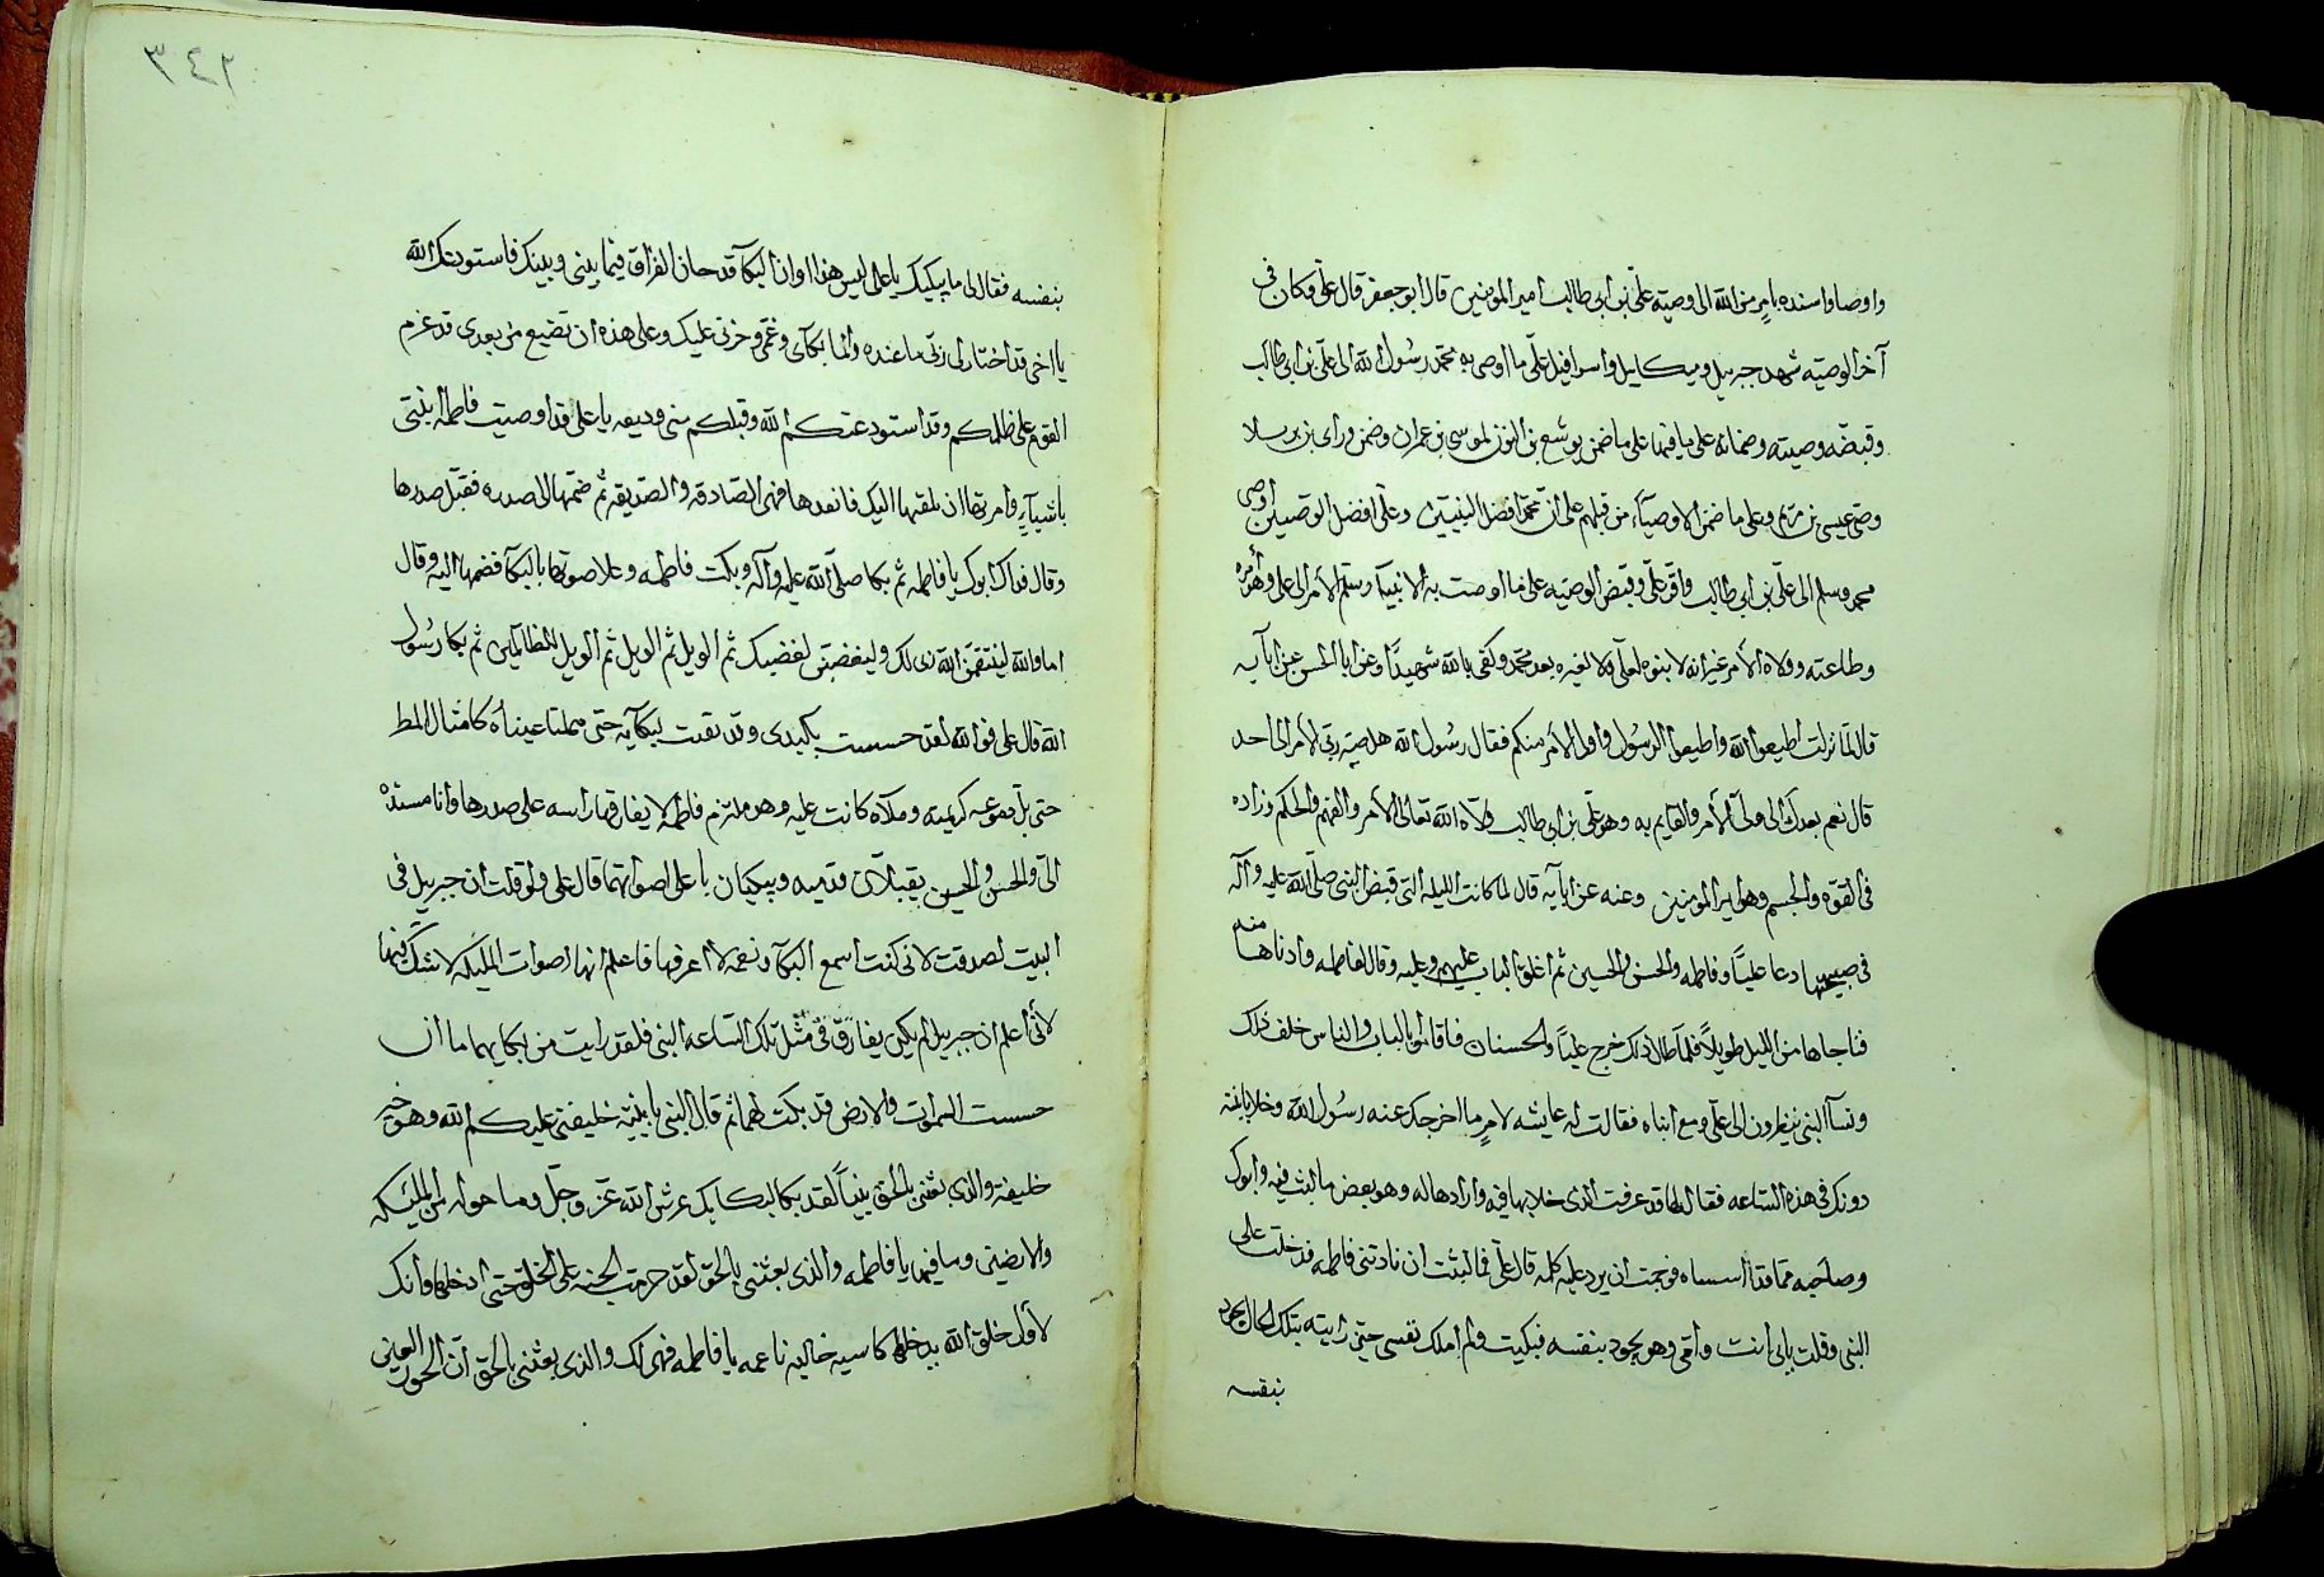 واوصا واسنده بامرٍ من الله الى وصيه علىّ بن ابى طالب امير المومنين قال ابو جعفر قال علىّ فكان فى
آخر الوصيه شهد جبريل وميكاييل واسرافيل علىّ ما اوصى به محمّد رسُول الله الى علىّ بن ابى طالب
وقبضه وصيته وضمانه على ما فيها على ما ضمن يوشع بن النون لموسى بن عمران وضمن وراى بن برسلا
وصىّ عيسى بن مريم وعلى ما ضمن الاوصيآء من قبلهم على ان محمّدا افضل النبيين وعلىّ افضل الوصيين اوصى
محمد وسلم الى علىّ بن ابى طالب واقرّ علىّ وقبض الوصيه على ما اوصت به الانبيآ وسلّم الأمر الى على وهو امره
وطاعته وولاه الأمر غير انه لا بنوه لعلىّ ولا لغيره بعد محمّد وكفى بالله شهيدًا وعن ابا الحسن عن ابآيه
قال لمّا نزلت اطيعوا الله واطيعوا الرسُول واولى الأمر منكم فقال رسُول الله هل صيّر ربّى الأمر الى احد
قال نعم بعدك الى ولىّ الأمر والقايم به وهو علىّ بن ابى طالب ولّاه الله تعالى الأمر والفهم والحكم وزاده
فى القوّه والجسم وهو امير المومنين وعنه عن ابآيه قال لما كانت الليله التى قبض النبى صلّى الله عليه وآله
فى صبيحتها دعا عليّاً وفاطمه والحسن والحسين ثم اغلق الباب عليهم وعليه وقال لفاطمه وادناها منه
فناجاها من الليل طويلاً فلمّا طال ذلك خرج عليّاً والحسنان فاقاموا بالباب والناس خلف ذلك
ونسآ النبى ينظرون الى علىّ ومع ابناه فقالت له عايشه لامرٍ ما اخرجك عنه رسُول الله وخلا بابنته
دونك فى هذه الساعه فقال لها قد عرفت الذى خلا بها فيه وارادها له وهو بعض ما لبث فيه وابوك
وصاحبه ممّا قد اسساه فوجمت ان يرد عليه كلمه قال علىّ فما لبثت ان نادتنى فاطمه فدخلت على
النبى وقلت بابى انت وامّى وهو يجود بنفسه فبكيت ولم املك نفسى حتى رايته بتلك الحال يجود
بنفسه
٣٤٢
بنفسه فقال لى ما يبكيك يا على ليس هذا اوان البكآ قد حان الفراق فيما بينى وبينك فاستودعتك الله
يا اخى قد اختار لى ربّى ما عنده وانما بكآى وغمّى وحزنى عليك وعلى هذه ان تضيع من بعدى قد عزم
القوم على ظلمكم وقد استودعتكم الله وقبلكم منى وديعه يا على قد اوصيت فاطمه ابنتى
باشيآءٍ وامرتها ان تلقيها اليك فانفدها فهى الصّادقه والصدّيقه ثم ضمّها الى صدره فقبّل صدرها
وقال فداك ابوك يا فاطمه ثم بكا صلّى الله عليه وآله وبكت فاطمه وعلا صوتها بالبكآ فضمها اليه وقال
اما والله لينتقمنّ الله ربى لك وليغضبنّ لغضبك ثم الويل ثم الويل ثم الويل للظالمين ثم بكا رسُول
الله قال على فوالله لقد حسست بكبدى وقد تقدت لبكآيه حتى هملتا عيناه كامثال المطر
حتى بلّ دموعه كريمته وملآه كانت عليه وهو ملتزم فاطمه لا يفارقها راسه على صدرها وانا مسنده
الىّ والحسن والحسين يقبّلان قدميه ويبكيان باعلى اصواتهما قال على ولو قلت ان جبريل فى
البيت لصدقت لانى كنت اسمع البكآ ونغمه لا اعرفها فاعلم انها اصوات الملئكه لا شكّ فيها
لأنى اعلم ان جبريل لم يكن يفارق فى مثل تلك السّاعه النبى فلقد رايت من بكايهما ما ان
حسست السموات والارض قد بكت لهما ثم قال النبى يا بنيّه خليفتى عليكم الله وهو خير
خليفه والذى بعثنى بالحق نبيّاً لقد بكا لبكايك عرش الله عزّ وجلّ وما حوله من الملئكه
والارضين وما فيها يا فاطمه والذى بعثنى بالحق لقد حرمت الجنه على الخلق حتى ادخلها وانك
لأول خلق الله يدخلها كاسيه حاليه ناعمه يا فاطمه فهى لك والذى بعثنى بالحق انّ الحور العين